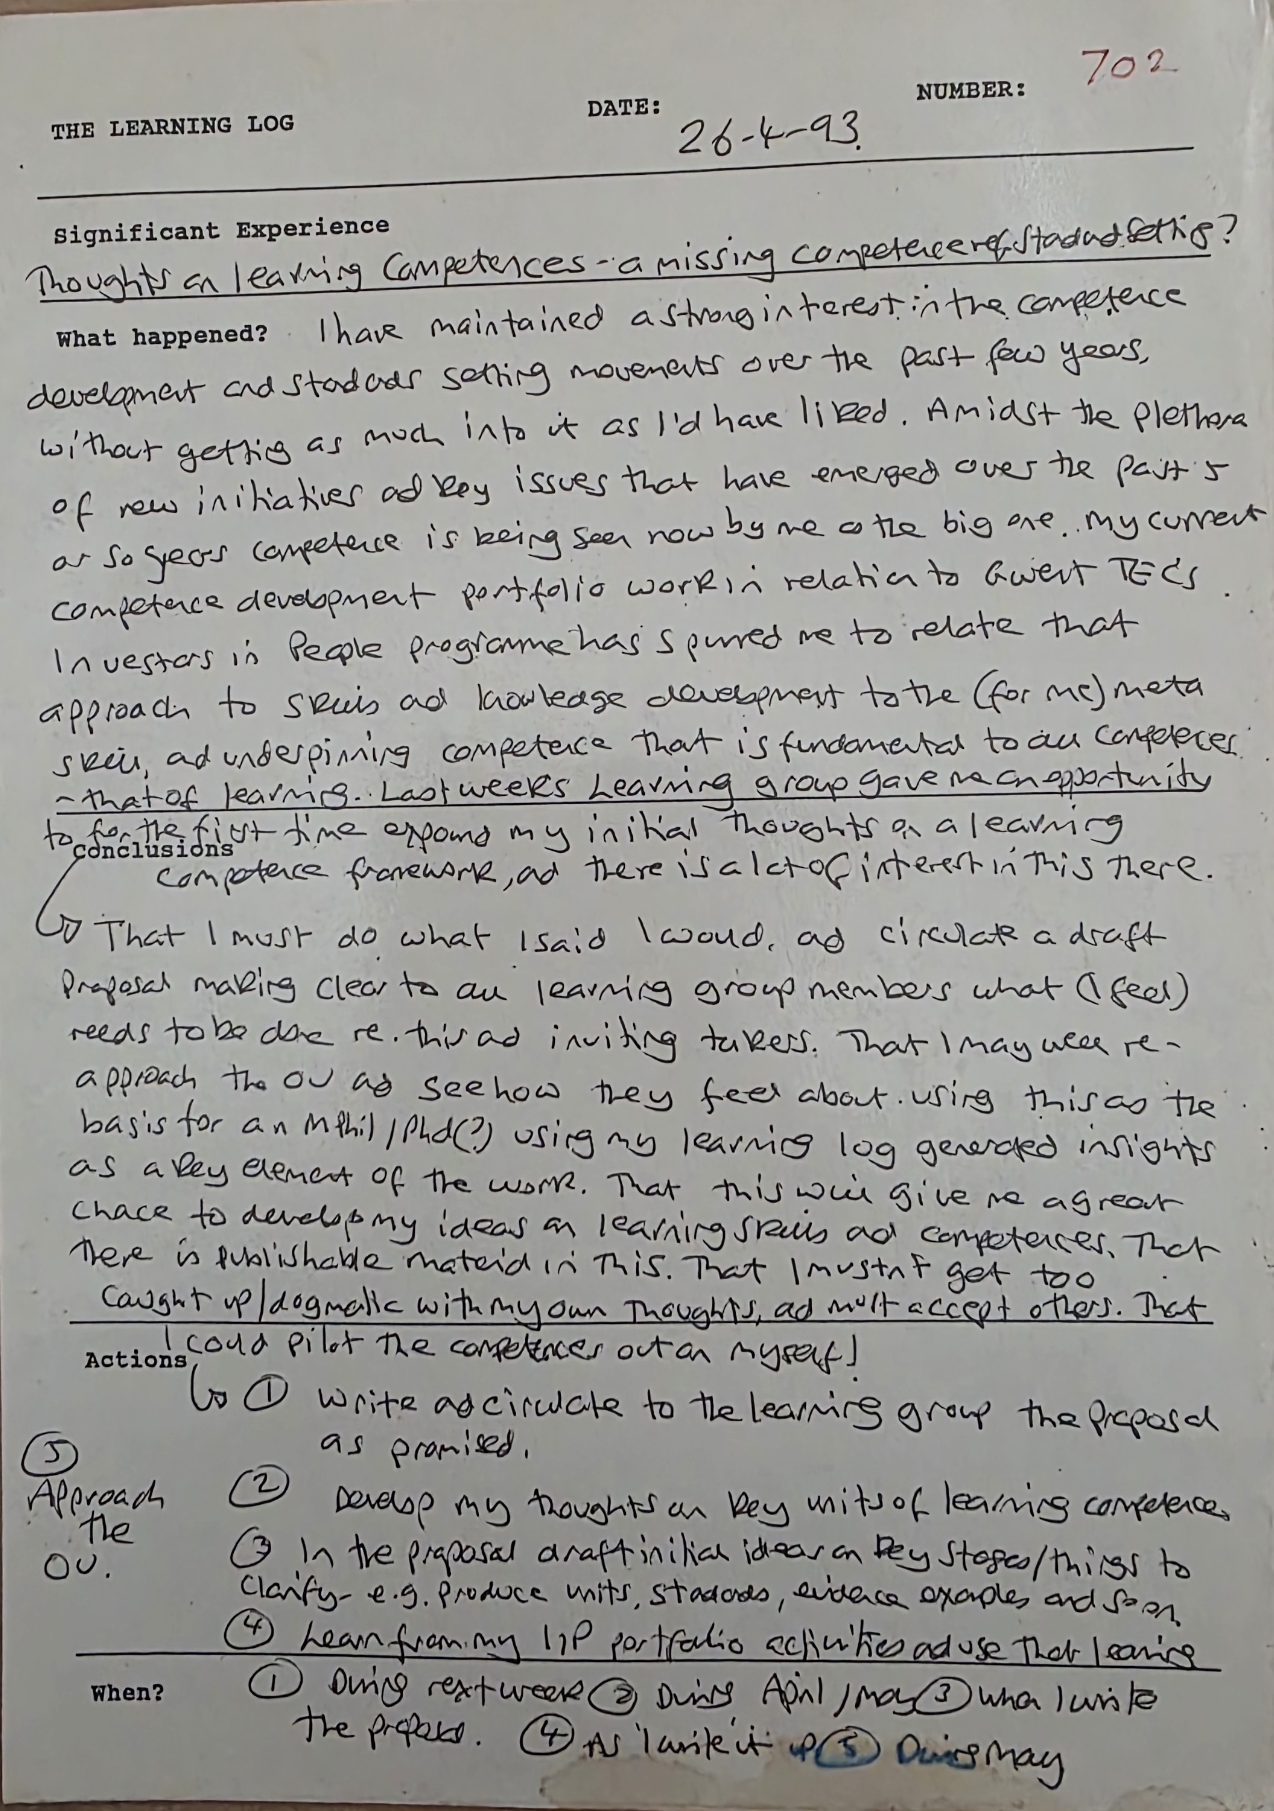 702
THE LEARNING LOG DATE: NUMBER:
26-4-93.
Significant Experience
Thoughts on learning Competences - a missing competence ref. Standard Setting?
What happened? I have maintained a strong interest in the competence
development and standards setting movements over the past few years,
without getting as much into it as I'd have liked. Amidst the plethora
of new initiatives and key issues that have emerged over the past 5
or so years competence is being seen now by me as the big one. My current
competence development portfolio work in relation to Gwent TECs
Investors in People programme has spurred me to relate that
approach to skills and knowledge development to the (for me) meta
skill, and underpinning competence that is fundamental to all competences
- that of learning. Last weeks Learning group gave me an opportunity
to for the first time expound my initial thoughts on a learning
Conclusions
competence framework, and there is a lot of interest in this there.
That I must do what I said I would, and circulate a draft
proposal making clear to all learning group members what (I feel)
needs to be done re. this and inviting takers. That I may well re-
approach the OU and see how they feel about using this as the
basis for an Mphil/Phd(?) using my learning log generated insights
as a key element of the work. That this will give me a great
chance to develop my ideas on learning skills and competences. That
there is publishable material in this. That I mustn't get too
caught up/dogmatic with my own thoughts, and must accept others. That
I could pilot the competences out on myself!
Actions
① Write and circulate to the learning group the proposal
as promised.
② Develop my thoughts on key units of learning competence.
③ In the proposal draft initial ideas on key stages/things to
clarify - e.g. produce units, standards, evidence examples and so on
④ Learn from my IIP portfolio activities and use that learning
⑤
Approach
the
OU.
When? ① During next week ② During April/May ③ When I write
the proposal. ④ As I write it up ⑤ During May